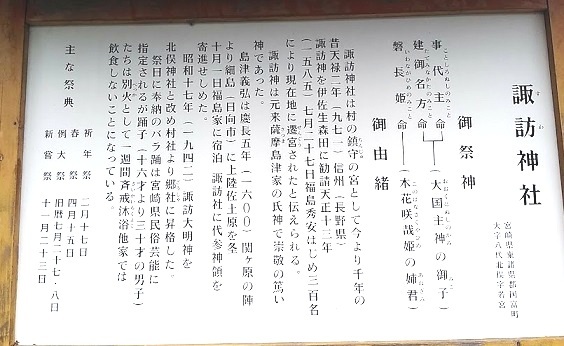 諏訪神社
すわ
宮崎県東諸県郡国富町
大字八代北俣字若宮
御祭神
事代主命
ことしろぬしのみこと
建御名方命
たけみなかたのみこと
(大国主神の御子)
おおくにぬしのかみ みこ
磐長姫命
いわながひめのみこと
(木花咲哉姫の姉君)
このはなさくやひめ あねぎみ
御由緒
諏訪神社は村の鎮守の宮として今より千年の
昔天禄二年(九七一)信州(長野県)
諏訪神を伊佐生森田に勧請天正十三年
(一五八五)七月二十七日福島秀安はじめ三百名
により現在地に遷宮されたと伝えられる。
諏訪神は元来薩摩島津家の氏神で崇敬の篤い
神であった。
島津義弘は慶長五年(一六〇〇)関ヶ原の陣
より細島(日向市)に上陸佐土原を冬
十月一日福島家に宿泊 諏訪神社に代参神領を
寄進せしめた。
昭和十七年(一九四二)諏訪大明神を
北俣神社と改め村社より郷社に昇格した。
祭日に奉納のバラ踊は宮崎県民俗芸能に
指定されるが踊子(十六才より三十才の男子)
たちは別火として一週間斉戒沐浴他家では
飲食しないことになっている。
主な祭典
祈年祭 二月十七日
春祭 四月十五日
例大祭 旧暦七月二十七・八日
新嘗祭 十一月二十三日